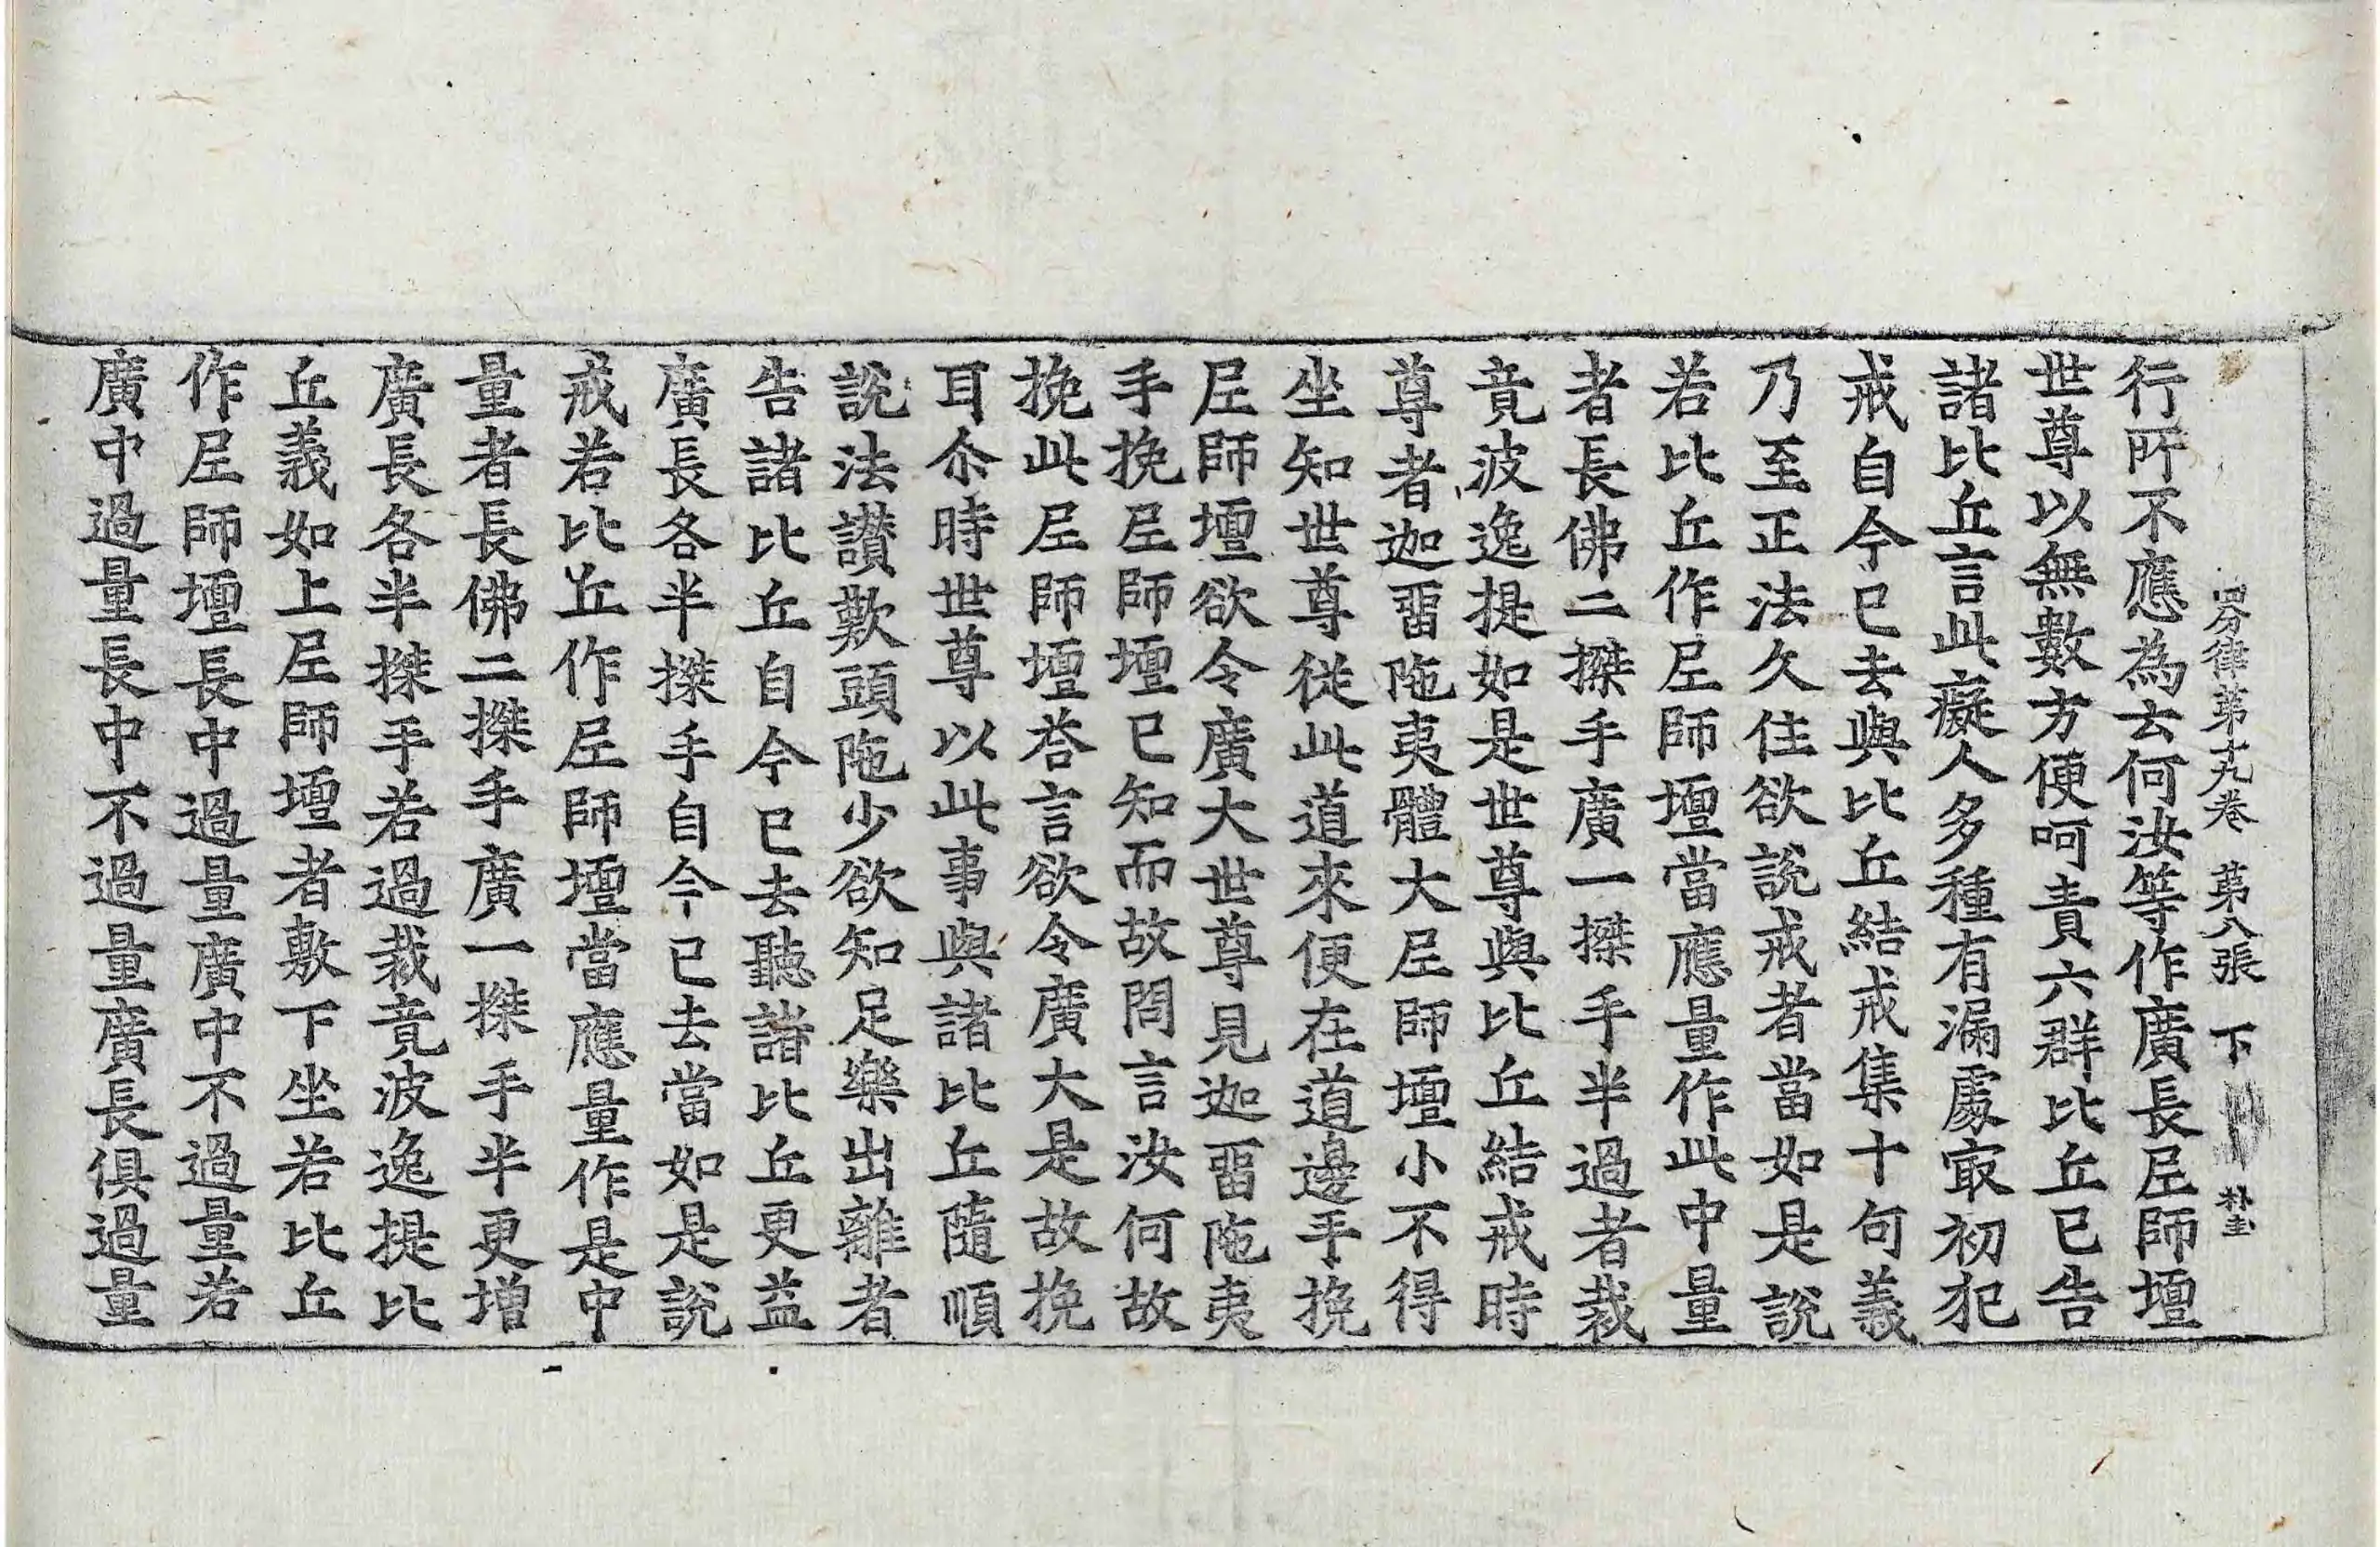 四分律第十九卷 第八張 下 朴圭
行所不應為云何汝等作廣長𡰱師壇
世尊以無數方便呵責六群比丘已告
諸比丘言此癡人多種有漏處冣初犯
戒自今已去與比丘結戒集十句義
乃至正法久住欲說戒者當如是說
若比丘作𡰱師壇當應量作此中量
者長佛二搩手廣一搩手半過者裁
竟波逸提如是世尊與比丘結戒時
尊者迦留陁夷體大𡰱師壇小不得
坐知世尊從此道來便在道邊手挽
𡰱師壇欲令廣大世尊見迦留陁夷
手挽𡰱師壇已知而故問言汝何故
挽此𡰱師壇荅言欲令廣大是故挽
耳尒時世尊以此事與諸比丘隨順
說法讃歎頭陁少欲知足樂出離者
告諸比丘自今已去聽諸比丘更益
廣長各半搩手自今已去當如是說
戒若比丘作𡰱師壇當應量作是中
量者長佛二搩手廣一搩手半更增
廣長各半搩手若過裁竟波逸提比
丘義如上𡰱師壇者敷下坐若比丘
作𡰱師壇長中過量廣中不過量若
廣中過量長中不過量廣長俱過量